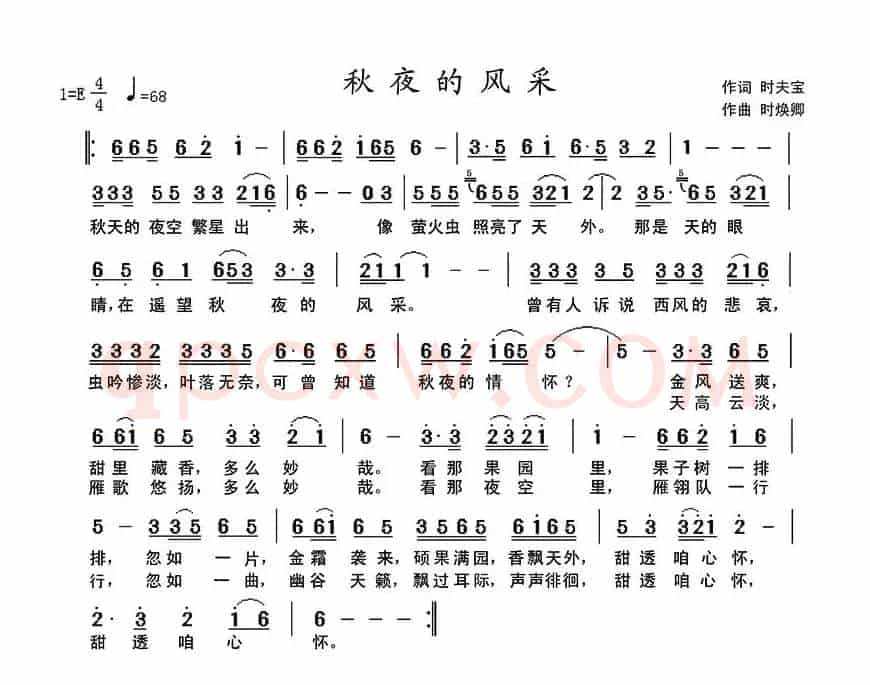 秋夜的风采
1=E 4/4 ♩=68
作词 时夫宝
作曲 时焕卿
665 62 1 - | 662 165 6 - | 3·5 61 6·5 32 | 1 - - - |
333 55 33 216 | 6 - - 03 | 555 655 321 2 | 2 35· 65 321 |
秋天的 夜空 繁星 出 来, 像 萤火虫 照亮了 天 外。 那是 天的 眼
65 61 653 3·3 | 211 1 - - | 333 35 555 216 |
睛,在 遥望 秋 夜的 风采。 曾有人 诉说 西风的 悲哀,
3332 3335 6·6 65 | 662 165 5 - | 5 - 3·3 65 |
虫吟惨淡,叶落无奈,可曾 知道 秋夜的情 怀? 金风 送爽,
天高云淡,
661 65 33 21 | 6 - 3·3 2321 | 1 - 662 16 |
甜里 藏香,多么 妙 哉。看那 果园 里, 果子树 一排
雁歌 悠扬,多么 妙 哉。看那 夜空 里, 雁翎队 一行
5 - 335 65 | 661 65 3235 6165 | 33 321 2 - |
排, 忽如 一片,金霜 袭来,硕果满园,香飘天外, 甜透 咱心 怀,
行, 忽如 一曲,幽谷 天籁,飘过耳际,声声徘徊, 甜透 咱心 怀,
2· 3 2 16 | 6 - - :|
甜 透 咱 心 怀。
qpcxw.com